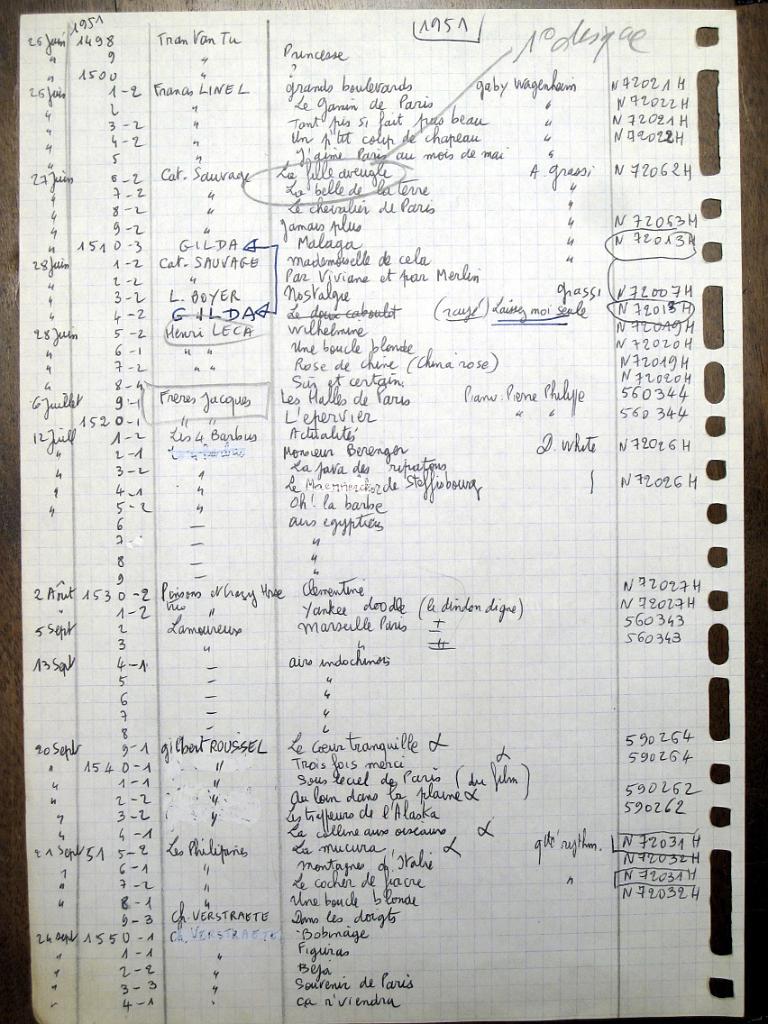 1951
1951
1er disque
26 Juin 1498 Tran Van Tu
" 9 " Princesse
" 1500 " ?
26 Juin 1-2 Francis LINEL grands boulevards gaby Wagenheim N 72021 H
" 2 " Le Gamin de Paris " N 72022 H
" 3-2 " Tant pis si fait pas beau " N 72021 H
" 4-2 " Un p'tit coup de chapeau " N 72022 H
" 5 " J'aime Paris au mois de mai "
27 Juin 6-2 Cat. Sauvage La fille aveugle A. grassi N 72062 H
" 7-2 " La belle de la terre "
" 8-2 " Le chevalier de Paris "
" 9-2 " Jamais plus " N 72053 H
" 1510-3 GILDA Malaga " N 72013 H
28 Juin 1-2 Cat. SAUVAGE Mademoiselle de cela "
" 2-2 " Par Viviane et par Merlin
" 3-2 L. BOYER Nostalgie grassi N 72007 H
" 4-2 GILDA Le doux caboulot (rayé) Laissez moi seule N 72013 H
28 Juin 5-2 Henri LECA Wilhelmine N 72019 H
" 6-1 " " Une boucle blonde N 72020 H
" " " Rose de chine (China rose) N 72019 H
" 8-4 Sûr et certain N 72020 H
6 Juillet 9-1 Frères Jacques Les Halles de Paris Piano: Pierre Philippe 560344
" 1520-1 " " L'epervier " " 560344
12 Juill 1-2 Les 4 Barbus Actualités
" 2-1 Monsieur Berenger D. White N 72026 H
" 3-2 " La Java des
" 4-1 " Le de N 72026 H
" 5-2 " Oh! la barbe
6 — airs egyptiens
7 — "
8 — "
9 — "
2 Août 1530-2 Poisons et Crazy Horse Clementine N 72027 H
" 1-2 trio " Yankee doodle (le dindon digne) N 72027 H
5 Sept 2 Lamoureux Marseille Paris 560343
3 " " 560343
13 Sept 4-1 — airs indochinois
5 — "
6 — "
7 — "
8 — "
20 Sept 9-1 gilbert ROUSSEL Le cœur tranquille 590264
" 1540-1 " Trois fois merci 590264
" 1-1 " Sous le ciel de Paris (du film)
" 2-2 " Au loin dans la plaine 590262
" 3-2 " Les trappeurs de l'Alaska 590262
" 4-1 La colline aux oiseaux
21 Sept 51 5-2 Les Philipines La mucura qtte rythm. N 72031 H
" 6-1 " Montagnes d'Italie N 72032 H
" 7-2 " Le cocher de fiacre " N 72031 H
" 8-1 " Une boucle blonde N 72032 H
9-3 Ch. VERSTRAETE Dans les doigts
24 sept 1550-1 Ch. VERSTRAETE Bobinage
" 1-1 " Figuras
" 2-2 " Beja
" 3-3 " Souvenir de Paris
" 4-1 " ça r'viendra